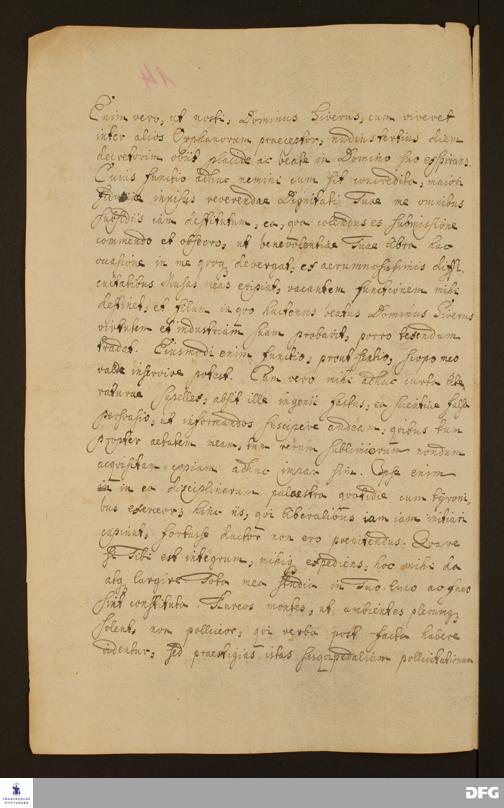 14
Enim vero, ut nosti, Dominus Siverus, cum viveret
inter alios Orphanorum praeceptor, nudius tertius diem
decretorium obiit placide ac beate in Domino suo exspirans.
Cuius functio adhuc nemini cum sit concredita, maiori
innisus reverendae Dignitati Tuae me omnibus
subsidiis iam destitutum, ea, qua colendus es submissione
commendo et obsecro, ut benevolentiae Tuae libra hac
occasione in me quoq devergat, ex aerumnosissimis diffi-
cultatibus Musas meas eripiat, vacantem functionem mihi
destinet, et filum in quo hactenus beatus Dominus Siverus
virtutem et industriam suam probavit, porro texendum
tradat. Eiusmodi enim functio, prout statio, scopo meo
valde inservire potest. Cum vero mihi adhuc curta lite-
raturae supellex, absit ille ingenii fastus, ea scientiae falsa
persuasio, ut informandos suscipere audeam, quibus tum
propter aetatem meam, tum rerum sublimiorum nondum
acquisitam copiam adhuc impar sim. Ipse enim
in ea disciplinarum palaestra quotidie cum tyroni-
bus exerceor; hinc iis, qui liberalibus iam iam initiari
capiunt, fortasse ductor non ero poenitendus. Quare
si Tibi est integrum, mihiq expediens, hoc mihi da
atq largire. Tota mea studia in Tuo luco ac
sint constituta. Aureos montes, ut ambientes plerumq
solent, non polliceor, qui verba post facta habere
videntur, sed praestigias istas sesquipedalium pollicitationum
FRANCKESCHE STIFTUNGEN
DFG